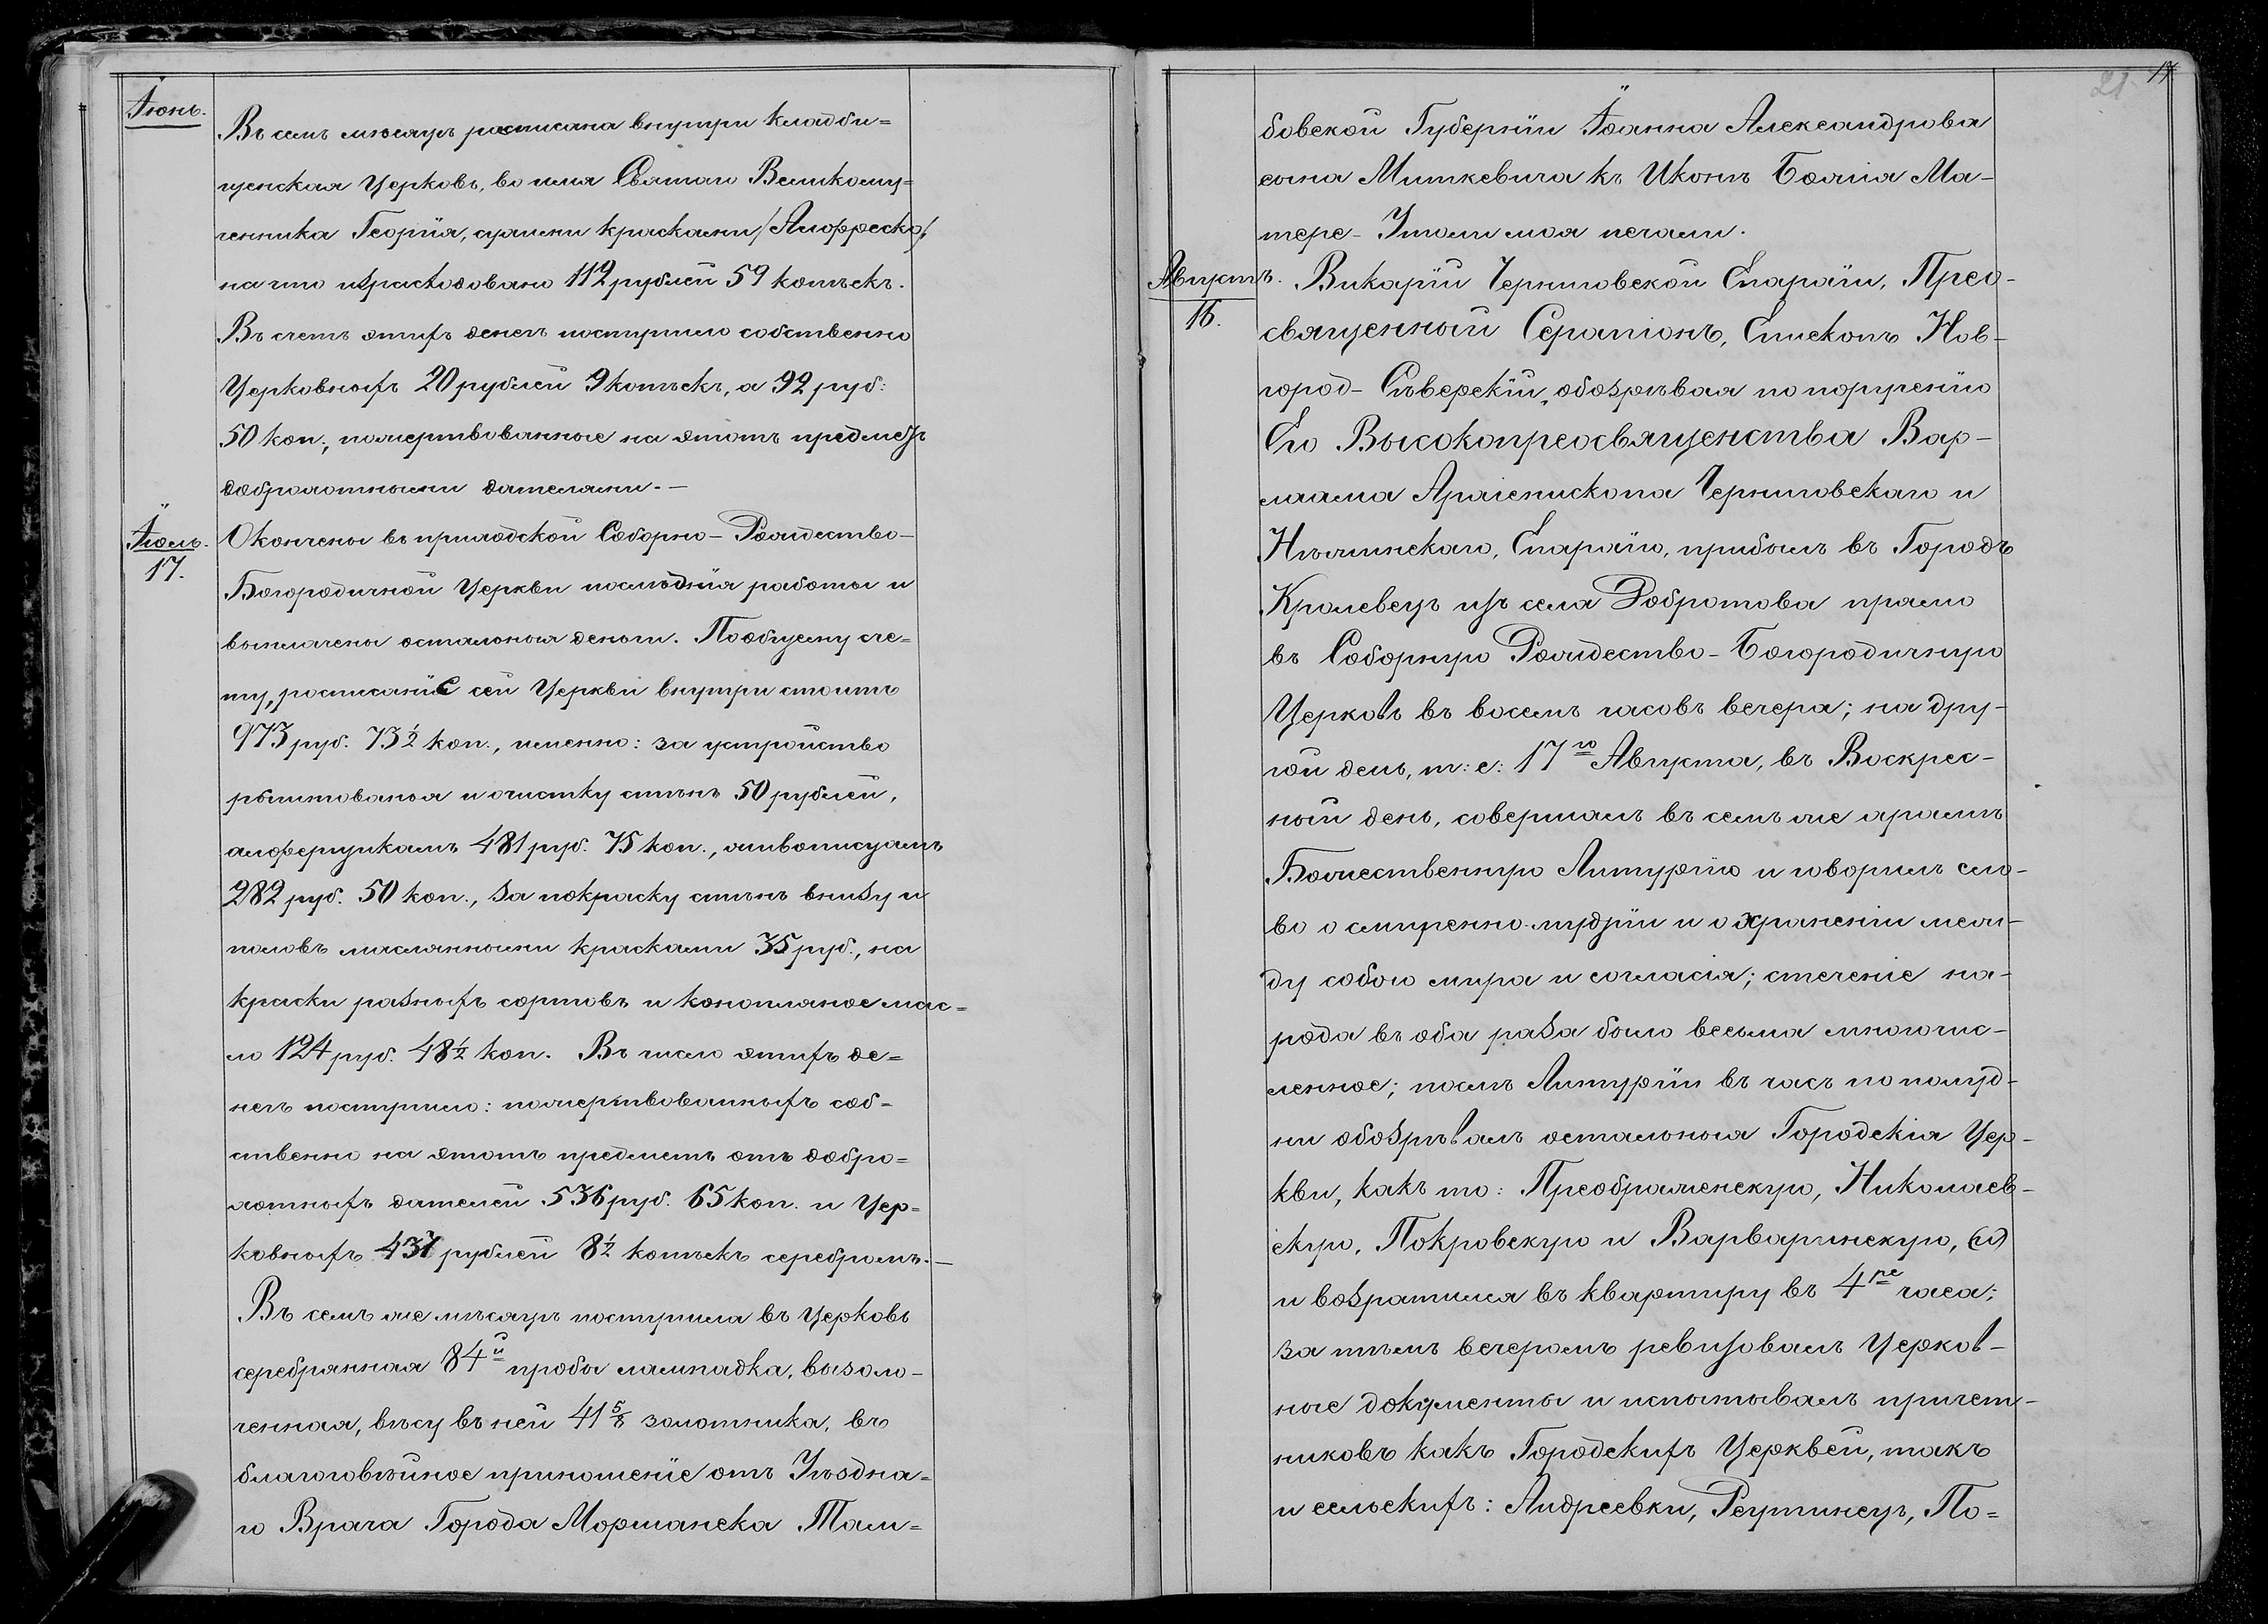 Іюнь.
Въ семъ мѣсяцѣ росписана внутри кладби=
щенская Церковь, во имя Святаго Великому=
ченника Георгія, сухими красками /Алюфреско/,
на что израсходовано 112 рублей 59 копѣекъ.
Въ счетъ этихъ денегъ поступило собственно
Церковныхъ 20 рублей 9 копѣекъ, а 92 руб:
50 коп., пожертвованные на этотъ предметъ
доброхотными дателями.—
Іюль.
17.
Окончены въ приходской Соборно-Рождество-
Богородичной Церкви послѣднія работы и
выплачены остальныя деньги. По общему сче=
ту, росписаніе сей Церкви внутри стоитъ
973 руб. 73½ коп., именно: за устройство
рыштованья и очистку стѣнъ 50 рублей,
алфершикамъ 481 руб. 75 коп., живописцамъ
282 руб. 50 коп., за покраску стѣнъ внизу и
половъ маслянными красками 35 руб., на
краски разныхъ сортовъ и коноплянное мас=
ло 124 руб. 48½ коп. Въ число этихъ де=
негъ поступило: пожертвованныхъ соб=
ственно на этотъ предметъ отъ добро=
хотныхъ дателей 536 руб. 65 коп. и Цер=
ковныхъ 437 рублей 8½ копѣекъ серебромъ.—
Въ семъ же мѣсяцѣ поступила въ Церковь
серебрянная 84й пробы лампадка, вызоло-
ченная, вѣсу въ ней 41 5/8 золотника, въ
благоговѣйное приношеніе отъ Уѣздна=
го Врача Города Моршанска Там=
21 17
бовской Губерніи Іоанна Александрова
сына Миткевича къ Иконѣ Божія Ма-
тере - Утоли моя печали.
Августъ.
16.
Викарій Черниговской Епархіи, Прео-
священный Серапіонъ, Епископъ Нов-
город-Сѣверскій, обозрѣвая по порученію
Его Высокопреосвященства Вар-
лаама Архіепископа Черниговскаго и
Нѣжинскаго, Епархію, прибылъ въ Городъ
Кролевецъ изъ села Добротова прямо
въ Соборную Рождество-Богородичную
Церковь въ восемь часовъ вечера; на дру-
гой день, т: е: 17го Августа, въ Воскрес-
ный день, совершалъ въ семъ же храмѣ
Божественную Литургію и говорилъ сло-
во о смиренно-мудріи и о храненіи меж-
ду собою мира и согласія; стеченіе на-
рода въ оба раза было весьма многочис-
ленное; послѣ Литургіи въ часъ по полуд-
ни обозрѣвалъ остальныя Городскія Цер-
кви, какъ то: Преображенскую, Николаев-
скую, Покровскую и Варваринскую, (и)
и возратился въ квартиру въ 4ре часа;
за тѣмъ вечеромъ ревизовалъ Церков-
ные документы и испытывалъ причет-
никовъ какъ Городскихъ Церквей, такъ
и сельскихъ: Андреевки, Реутинецъ, По=